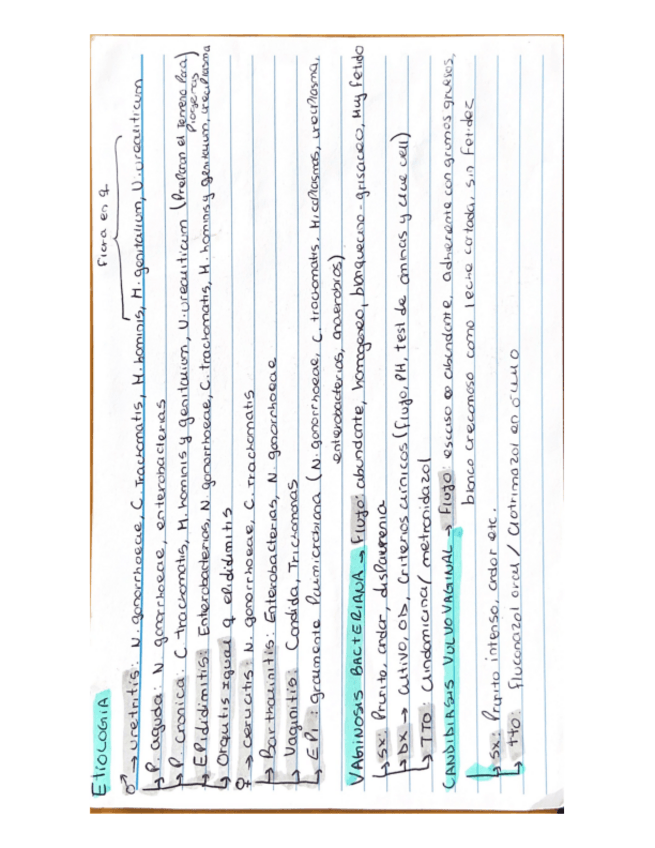 Etiología
Flora en ♀
♂ → uretritis: N. gonorrhoeae, C. Trachomatis, M. hominis, M. genitalium, U. urealiticum
↳ P. aguda: N. gonorrhoeae, enterobacterias
↳ P. cronica: C trachomatis, M. hominis y genitalium, U. urealiticum (Preparan el Terreno Para)
Piogenos
↳ EPididimitis: Enterobacterias, N. gonorrhoeae, C. trachomatis, M. hominis y genitalium, ureaplasma
↳ Orquitis igual q epididimitis
♀ → cervicitis: N. gonorrhoeae, C. trachomatis
↳ Bartholinitis: Enterobacterias, N. gonorrhoeae
↳ Vaginitis: Candida, Trichomonas
↳ EPI: gralmente Polimicrobiana (N. gonorrhoeae, C. trachomatis, Micoplasmas, ureaplasma,
enterobacterias, anaerobios)
VAGINOSIS BACTERIANA → Flujo: abundante, homogeneo, blanquecino-grisaceo, Muy fetido
↳ sx: Prurito, ardor, dispareunia
↳ Dx → cultivo, OD, Criterios clínicos (flujo, PH, test de aminas y clue cell)
↳ TTO: Clindamicina/ metronidazol
CANDIDIASIS VULVOVAGINAL → Flujo: escaso o abundante, adherente con grumos gruesos,
blanco cremoso como leche cortada, sin Fetidez
↳ sx: Prurito intenso, ardor etc.
↳ tto: fluconazol oral/ Clotrimazol en óvulo